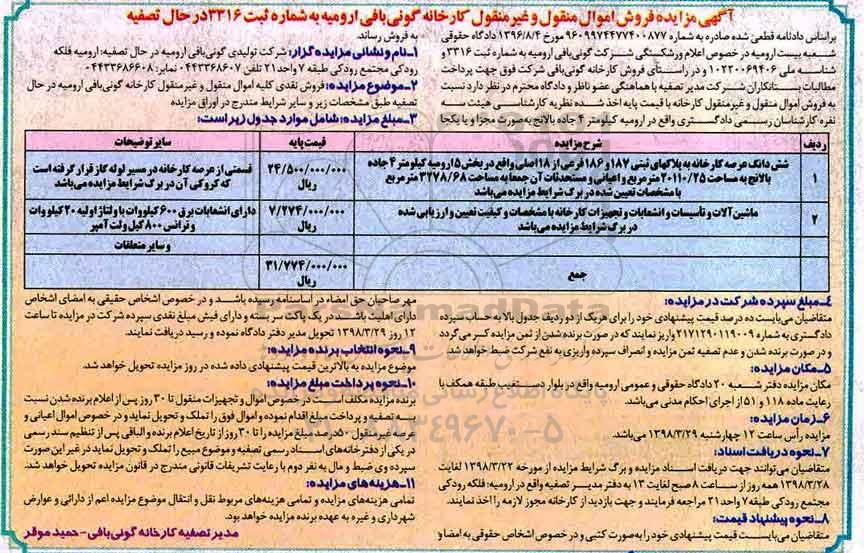 آگهی مزایده فروش اموال منقول و غیر منقول کارخانه گونی‌بافی ارومیه به شماره ثبت ۳۳۱۶ در حال تصفیه
براساس دادنامه قطعی شده صادره به شماره ۹۶۰۹۹۷۴۴۷۷۴۰۰۸۷۷ مورخ ۱۳۹۶/۸/۴ دادگاه حقوقی
شعبه بیست ارومیه در خصوص اعلام ورشکستگی شرکت گونی‌بافی ارومیه به شماره ثبت ۳۳۱۶ و
شناسه ملی ۱۰۲۲۰۰۶۹۴۰۶ و در راستای فروش کارخانه گونی‌بافی شرکت فوق جهت پرداخت
مطالبات بستانکاران شرکت مدیر تصفیه با هماهنگی عضو ناظر و دادگاه محترم در نظر دارد نسبت
به فروش اموال منقول و غیرمنقول کارخانه با قیمت پایه اخذ شده نظریه کارشناسی هیئت سه
نفره کارشناسان رسمی دادگستری واقع در ارومیه کیلومتر ۴ جاده بالانج به‌صورت مجزا و یا یکجا
به فروش رساند.
۱ـ نام و نشانی مزایده گزار: شرکت تولیدی گونی‌بافی ارومیه در حال تصفیه: ارومیه فلکه
رودکی مجتمع رودکی طبقه ۷ واحد ۲۱ تلفن ۰۴۴۳۳۶۸۶۰۷ نمابر: ۰۴۴۳۳۶۸۶۶۰۸
۲ـ موضوع مزایده: فروش نقدی کلیه اموال منقول و غیرمنقول کارخانه گونی‌بافی ارومیه در حال
تصفیه طبق مشخصات زیر و سایر شرایط مندرج در اوراق مزایده
۳ـ مبلغ مزایده: شامل موارد جدول زیر است:
ردیف شرح مزایده قیمت پایه سایر توضیحات
۱ شش دانگ عرصه کارخانه به پلاکهای ثبتی ۱۸۷ و ۱۸۶ فرعی از ۱۸ اصلی واقع در بخش ۵ ارومیه کیلومتر ۴ جاده
بالانج به مساحت ۲۰۱۱۰/۲۵ مترمربع و اعیانی و مستحدثات آن جمعا به مساحت ۳۲۷۸/۶۸ مترمربع
با مشخصات تعیین شده در برگ شرایط مزایده می‌باشد
۲۴/۵۰۰/۰۰۰/۰۰۰
ریال
قسمتی از عرصه کارخانه در مسیر لوله گاز قرار گرفته است
که کروکی آن در برگ شرایط مزایده می‌باشد
۲ ماشین آلات و تأسیسات و انشعابات و تجهیزات کارخانه با مشخصات و کیفیت تعیین و ارزیابی شده
در برگ شرایط مزایده می‌باشد
۷/۲۷۴/۰۰۰/۰۰۰
ریال
دارای انشعابات برق ۶۰۰ کیلووات با ولتاژ اولیه ۲۰ کیلووات
و ترانس ۸۰۰ کیل ولت آمپر
و سایر متعلقات
جمع ۳۱/۷۷۴/۰۰۰/۰۰۰
ریال
۴ـ مبلغ سپرده شرکت در مزایده:
متقاضیان می‌بایست ده درصد قیمت پیشنهادی خود را برای هریک از دو ردیف جدول بالا به حساب سپرده
دادگستری به شماره ۲۱۷۱۲۹۰۱۱۹۰۰۹ واریز نمایند که در صورت برنده شدن از ثمن مزایده کسر می‌گردد
و در صورت برنده شدن و عدم تصفیه ثمن مزایده و انصراف سپرده واریزی به نفع شرکت ضبط خواهد شد.
۵ـ مکان مزایده:
مکان مزایده دفتر شعبه ۲۰ دادگاه حقوقی و عمومی ارومیه واقع در بلوار دستغیب طبقه همکف با
رعایت ماده ۱۱۸ و ۵۱ از اجرای احکام مدنی می‌باشد.
۶ـ زمان مزایده:
مزایده رأس ساعت ۱۲ چهارشنبه ۱۳۹۸/۳/۲۹ می‌باشد.
۷ـ نحوه دریافت اسناد:
متقاضیان می‌توانند جهت دریافت اسناد مزایده و برگ شرایط مزایده از مورخه ۱۳۹۸/۳/۲۲ لغایت
۱۳۹۸/۳/۲۸ همه روز از ساعت ۸ صبح لغایت ۱۳ به دفتر مدیر تصفیه واقع در ارومیه: فلکه رودکی
مجتمع رودکی طبقه ۷ واحد ۲۱ مراجعه فرمایند و جهت بازدید از کارخانه مجوز لازمه را اخذ نمایند.
۸ـ نحوه پیشنهاد قیمت:
متقاضیان می‌بایست قیمت پیشنهادی خود را به‌صورت کتبی و در خصوص اشخاص حقوقی به امضا و
مهر صاحبان حق امضاء در اساسنامه رسیده باشد و در خصوص اشخاص حقیقی به امضای اشخاص
دارای اهلیت باشند در یک پاکت سربسته و دارای فیش مبلغ نقدی سپرده شرکت در مزایده تا ساعت
۱۲ روز ۱۳۹۸/۳/۲۹ تحویل مدیر دفتر دادگاه نموده و رسید دریافت نمایند.
۹ـ نحوه انتخاب برنده مزایده:
موضوع مزایده به بالاترین قیمت پیشنهادی داده شده در روز مزایده تحویل خواهد شد.
۱۰ـ نحوه پرداخت مبلغ مزایده:
برنده مزایده مکلف است در خصوص اموال و تجهیزات منقول تا ۳۰ روز پس از اعلام برنده شدن نسبت
به تصفیه و پرداخت مبلغ اقدام نموده و اموال فوق را تملک و تحویل نماید و در خصوص اموال اعیانی و
غیرمنقول ۵۰درصد مبلغ مزایده را تا ۳۰ روز از تاریخ اعلام برنده و الباقی پس از تنظیم سند رسمی
در یکی از دفترخانه‌های اسناد رسمی تصفیه و موضوع مبیع را تملک و تحویل نماید در غیر این صورت
سپرده وی ضبط و مال به نفر دوم با رعایت تشریفات قانونی مندرج در قانون مزایده تحویل خواهد شد.
۱۱ـ هزینه‌های مزایده:
تمامی هزینه‌های مزایده و تمامی هزینه‌های مربوط نقل و انتقال موضوع مزایده اعم از دارائی و عوارض
شهرداری و غیره به عهده برنده مزایده خواهد بود.
مدیر تصفیه کارخانه گونی‌بافی - حمید موقر